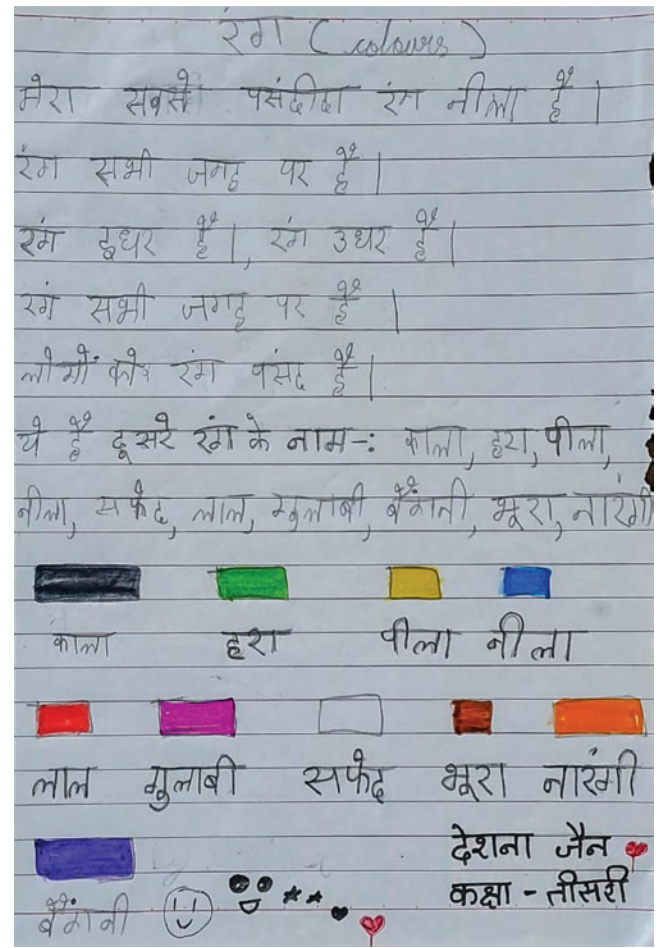 रंग (colours)
मेरा सबसे पसंदीदा रंग नीला है।
रंग सभी जगह पर है।
रंग इधर है।, रंग उधर है।
रंग सभी जगह पर है।
लोगों को रंग पसंद है।
ये है दूसरे रंग के नाम-: काला, हरा, पीला,
नीला, सफेद, लाल, गुलाबी, बैंगनी, भूरा, नारंगी
काला हरा पीला नीला
लाल गुलाबी सफेद भूरा नारंगी
देशना जैन
कक्षा - तीसरी
बैंगनी